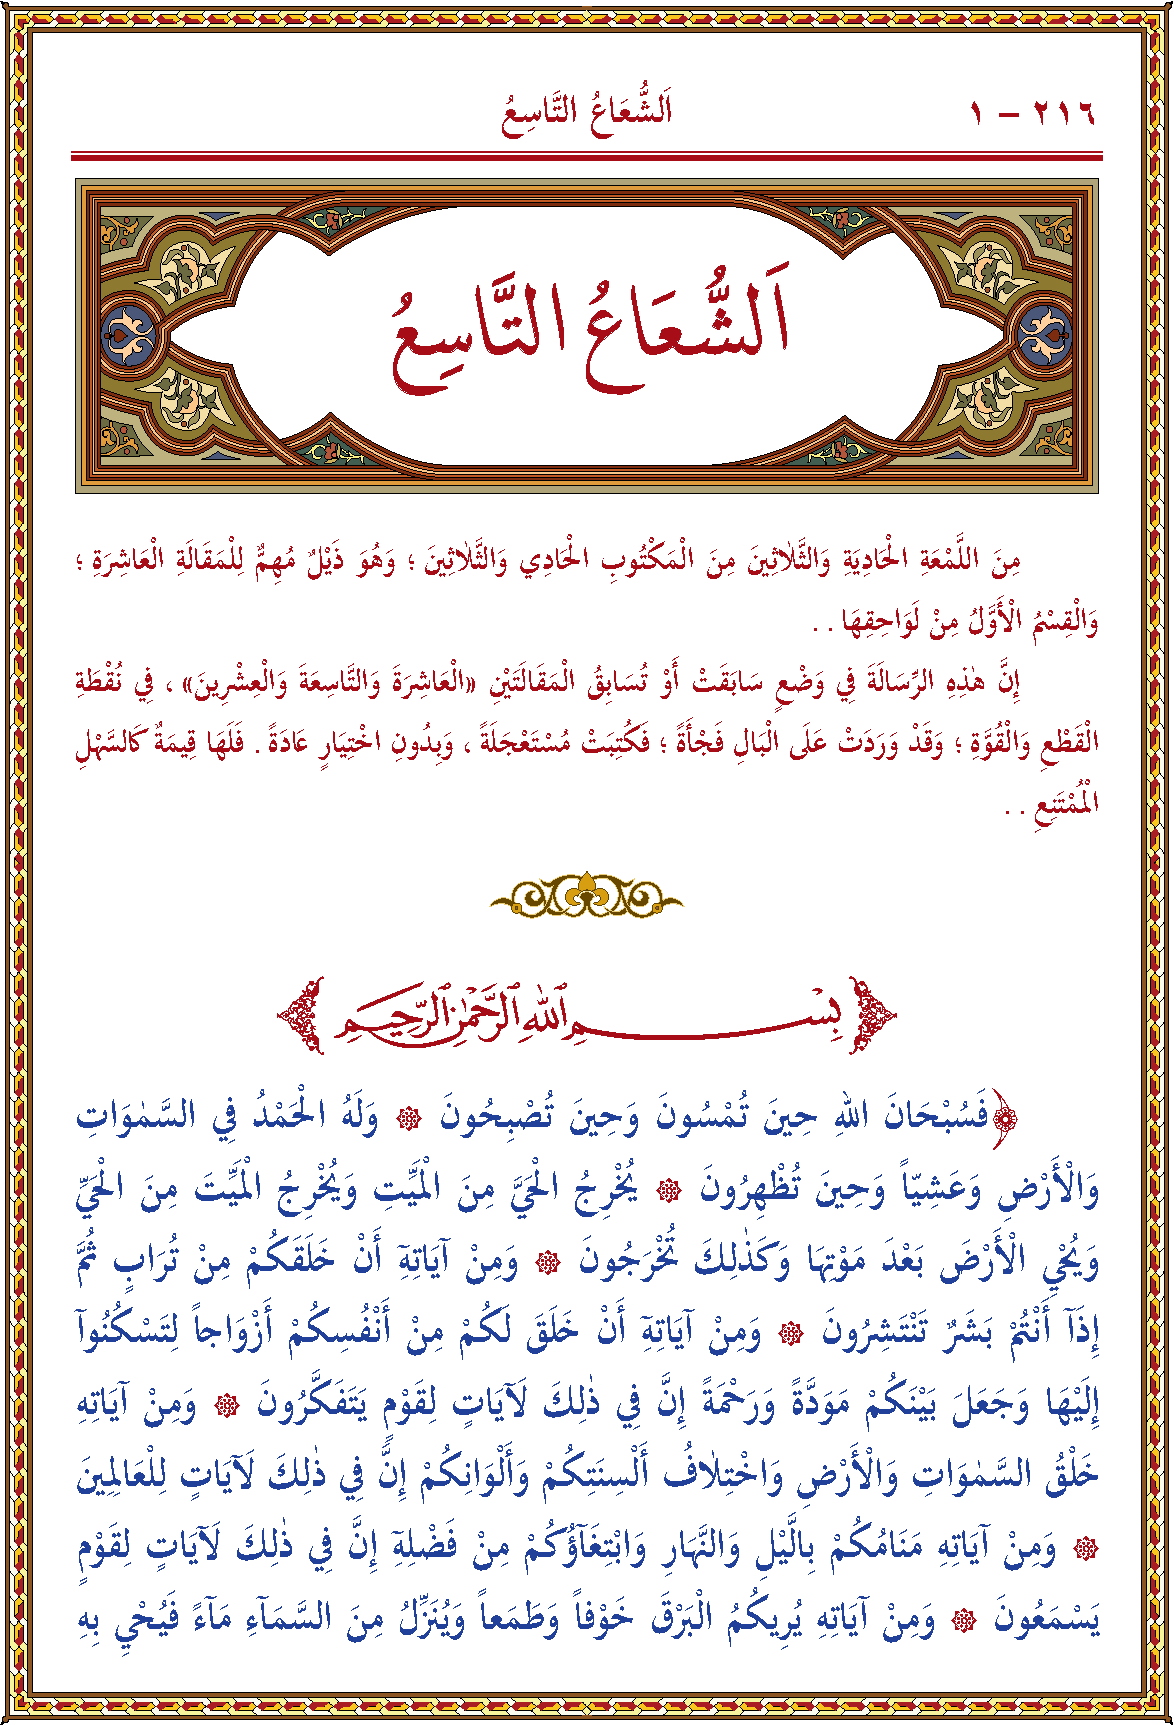 ٢١٦ – ١
اَلشُّعَاعُ التَّاسِعُ
اَلشُّعَاعُ التَّاسِعُ
مِنَ اللَّمْعَةِ الْحَادِيَةِ وَالثَّلَاثِينَ مِنَ الْمَكْتُوبِ الْحَادِي وَالثَّلَاثِينَ ؛ وَهُوَ ذَيْلٌ مُهِمٌّ لِلْمَقَالَةِ الْعَاشِرَةِ ؛
وَالْقِسْمُ الْأَوَّلُ مِنْ لَوَاحِقِهَا . .
إِنَّ هٰذِهِ الرِّسَالَةَ فِي وَضْعٍ سَابَقَتْ أَوْ تُسَابِقُ الْمَقَالَتَيْنِ «الْعَاشِرَةَ وَالتَّاسِعَةَ وَالْعِشْرِينَ» ، فِي نُقْطَةِ
الْقَطْعِ وَالْقُوَّةِ ؛ وَقَدْ وَرَدَتْ عَلَى الْبَالِ فَجْأَةً ؛ فَكُتِبَتْ مُسْتَعْجَلَةً ، وَبِدُونِ اخْتِيَارٍ عَادَةً . فَلَهَا قِيمَةٌ كَالسَّهْلِ
الْمُمْتَنِعِ . .
بِسْمِ اللهِ الرَّحْمٰنِ الرَّحِيمِ
﴿فَسُبْحَانَ اللهِ حِينَ تُمْسُونَ وَحِينَ تُصْبِحُونَ ۞ وَلَهُ الْحَمْدُ فِي السَّمٰوَاتِ
وَالْأَرْضِ وَعَشِيّاً وَحِينَ تُظْهِرُونَ ۞ يُخْرِجُ الْحَيَّ مِنَ الْمَيِّتِ وَيُخْرِجُ الْمَيِّتَ مِنَ الْحَيِّ
وَيُحْيِي الْأَرْضَ بَعْدَ مَوْتِهَا وَكَذٰلِكَ تُخْرَجُونَ ۞ وَمِنْ آيَاتِهِٓ أَنْ خَلَقَكُمْ مِنْ تُرَابٍ ثُمَّ
إِذَآ أَنْتُمْ بَشَرٌ تَنْتَشِرُونَ ۞ وَمِنْ آيَاتِهِٓ أَنْ خَلَقَ لَكُمْ مِنْ أَنْفُسِكُمْ أَزْوَاجاً لِتَسْكُنُوآ
إِلَيْهَا وَجَعَلَ بَيْنَكُمْ مَوَدَّةً وَرَحْمَةً إِنَّ فِي ذٰلِكَ لَآيَاتٍ لِقَوْمٍ يَتَفَكَّرُونَ ۞ وَمِنْ آيَاتِهِ
خَلْقُ السَّمٰوَاتِ وَالْأَرْضِ وَاخْتِلَافُ أَلْسِنَتِكُمْ وَأَلْوَانِكُمْ إِنَّ فِي ذٰلِكَ لَآيَاتٍ لِلْعَالِمِينَ
۞ وَمِنْ آيَاتِهِ مَنَامُكُمْ بِالَّيْلِ وَالنَّهَارِ وَابْتِغَآؤُكُمْ مِنْ فَضْلِهِٓ إِنَّ فِي ذٰلِكَ لَآيَاتٍ لِقَوْمٍ
يَسْمَعُونَ ۞ وَمِنْ آيَاتِهِ يُرِيكُمُ الْبَرْقَ خَوْفاً وَطَمَعاً وَيُنَزِّلُ مِنَ السَّمَآءِ مَآءً فَيُحْيِي بِهِ